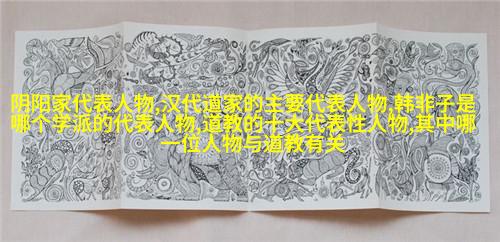 阴阳家代表人物,汉代道家的主要代表人物,韩非子是
哪个学派的代表人物,道教的十大代表性人物,其中哪
一位人物与道教有关